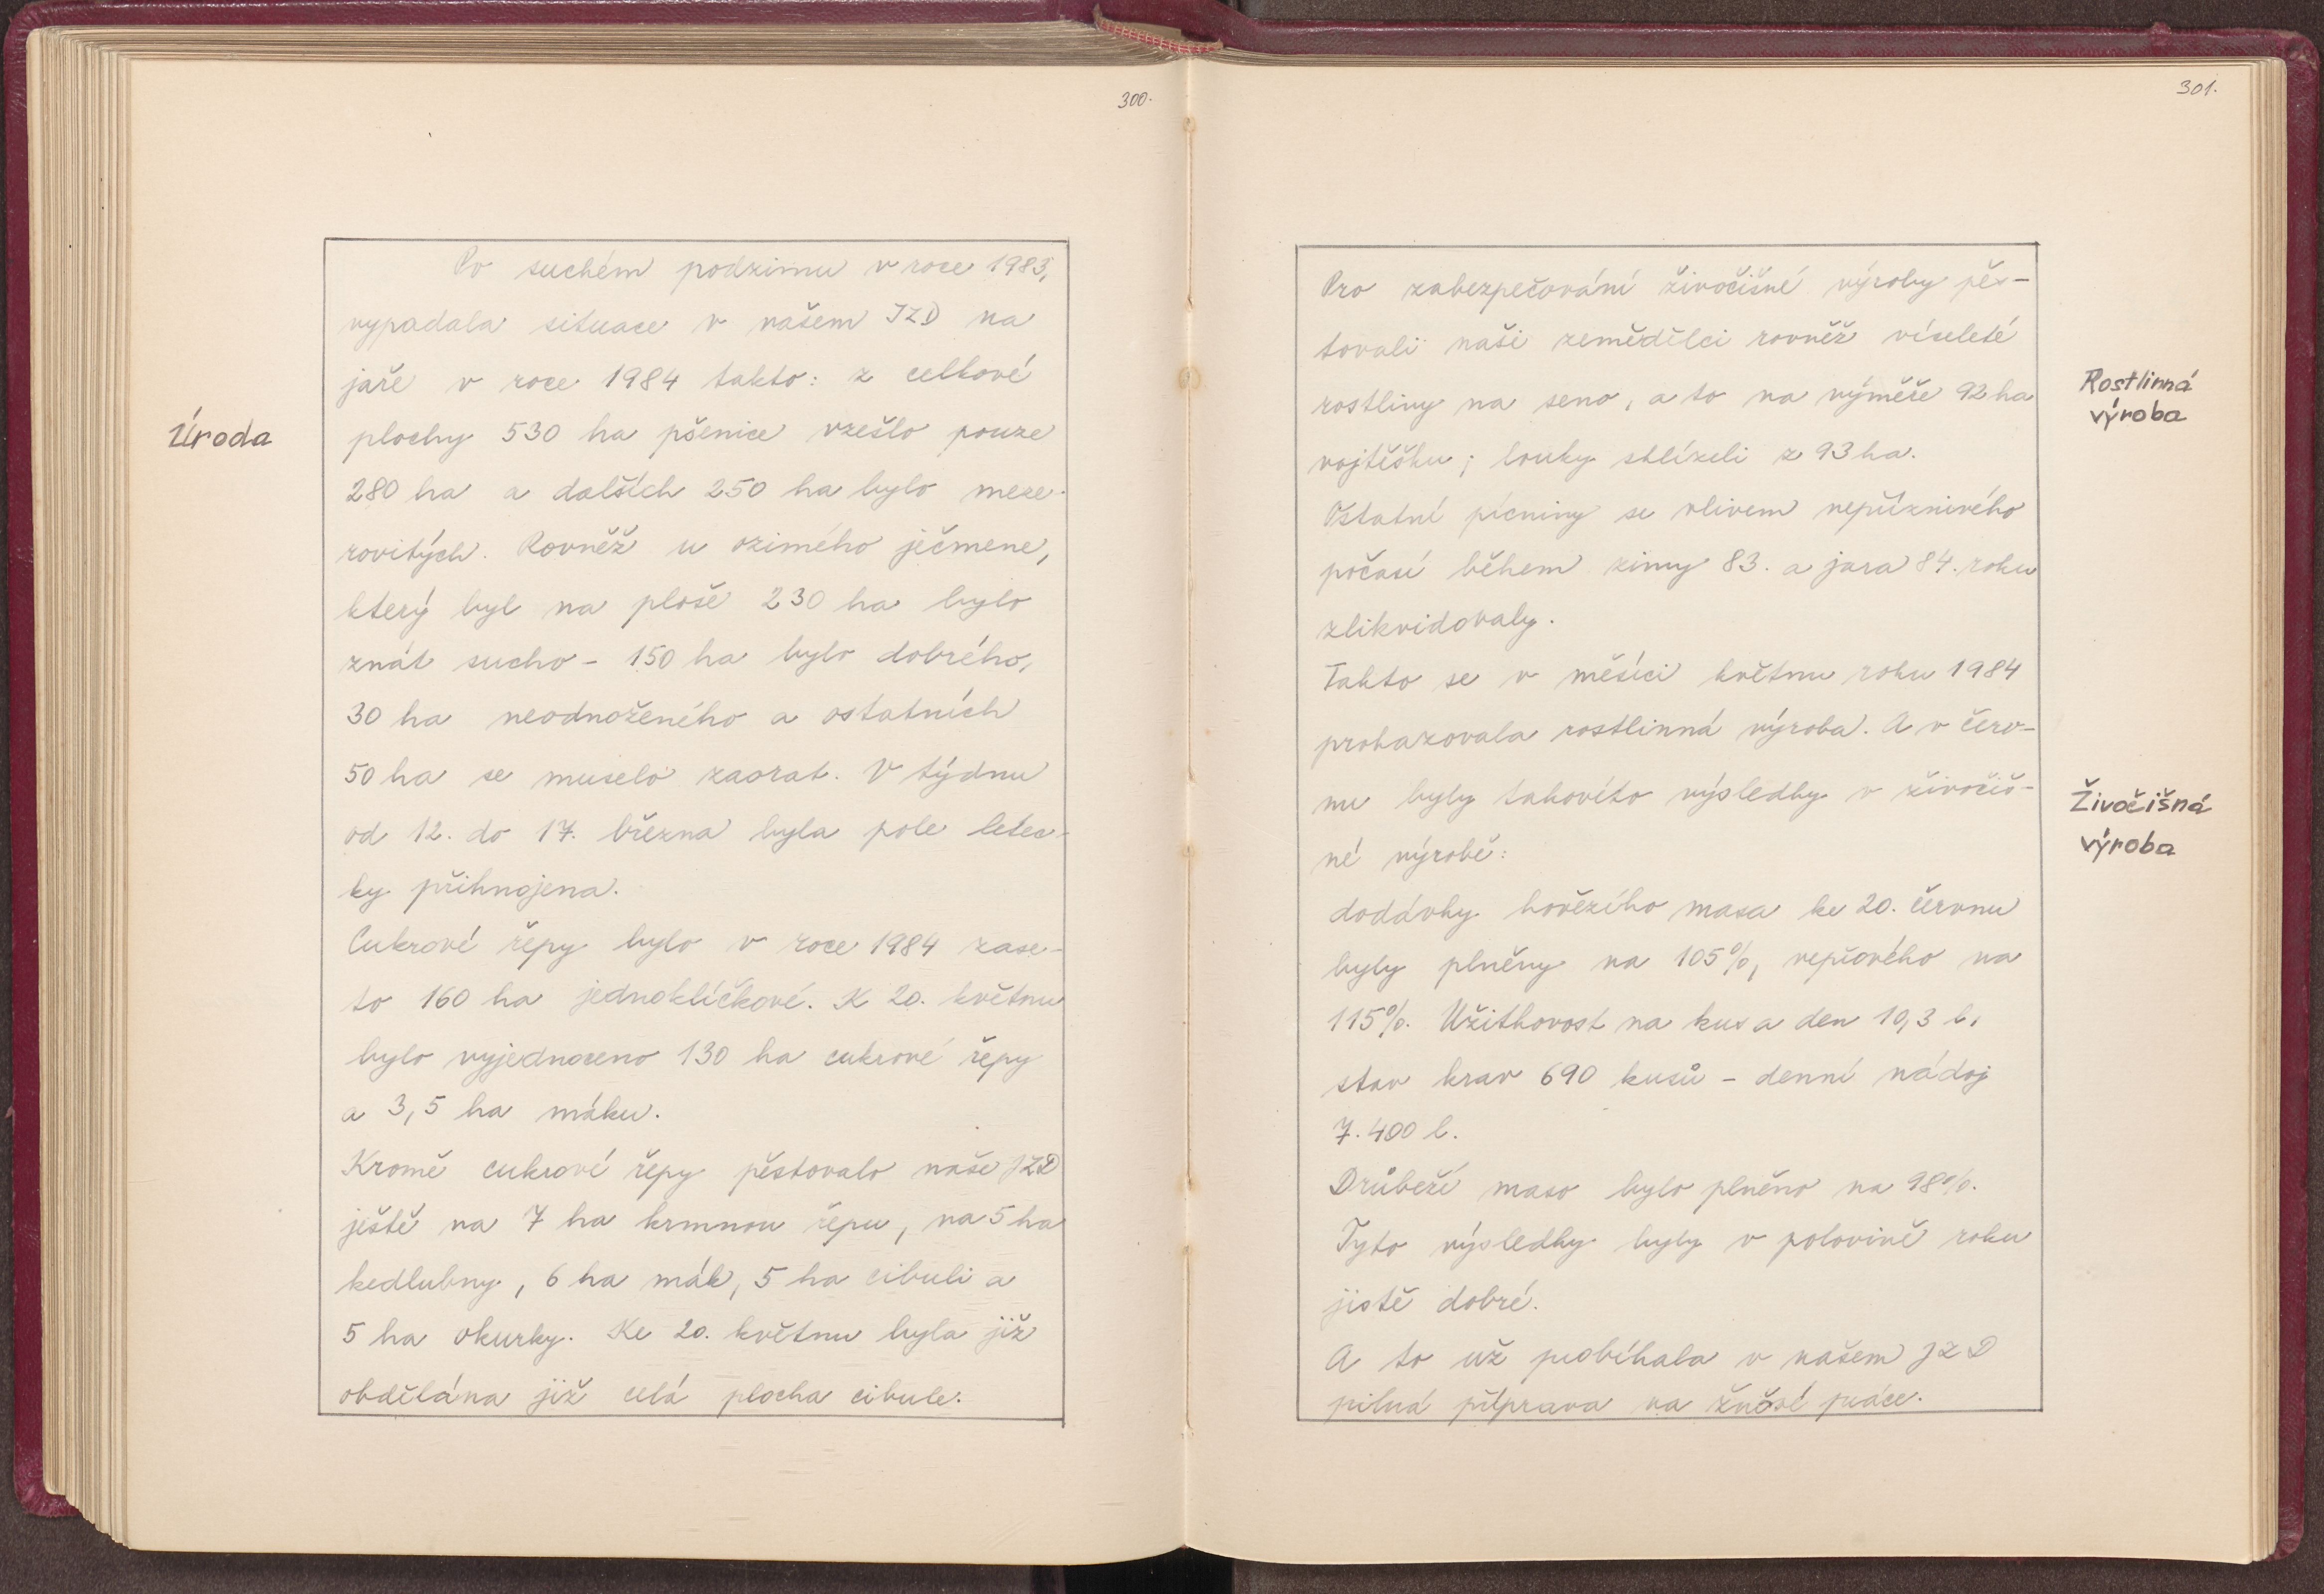 300.
Úroda
Po suchém podzimu v roce 1983,
vypadala situace v našem JZD na
jaře v roce 1984 takto: z celkové
plochy 530 ha pšenice vzešlo pouze
280 ha a dalších 250 ha bylo meze-
rovitých. Rovněž u ozimého ječmene,
který byl na ploše 230 ha bylo
znát sucho - 150 ha bylo dobrého,
30 ha neodnoženého a ostatních
50 ha se muselo zaorat. V týdnu
od 12. do 17. března byla pole letec-
ky přihnojena.
Cukrové řepy bylo v roce 1984 zase-
to 160 ha jednoklíčkové. K 20. květnu
bylo vyjednoceno 130 ha cukrové řepy
a 3,5 ha máku.
Kromě cukrové řepy pěstovalo naše JZD
ještě na 7 ha krmnou řepu, na 5 ha
kedlubny, 6 ha mák, 5 ha cibuli a
5 ha okurky. Ke 20. květnu byla již
obdělána již celá plocha cibule.
301.
Pro zabezpečování živočišné výroby pěs-
tovali naši zemědělci rovněž víceleté
rostliny na seno, a to na výměře 92 ha
vojtěšku; louky sklízeli z 93 ha.
Ostatní pícniny se vlivem nepříznivého
počasí během zimy 83. a jara 84. roku
zlikvidovaly.
Takto se v měsíci květnu roku 1984
prokazovala rostlinná výroba. A v červ-
nu byly takovéto výsledky v živočiš-
né výrobě:
dodávky hovězího masa ke 20. červnu
byly plněny na 105%, vepřového na
115%. Užitkovost na kus a den 10,3 l,
stav krav 690 kusů - denní nádoj
7.400 l.
Drůbeží maso bylo plněno na 98%.
Tyto výsledky byly v polovině roku
jistě dobré.
A to už probíhala v našem JZD
pilná příprava na žňové práce.
Rostlinná
výroba
Živočišná
výroba